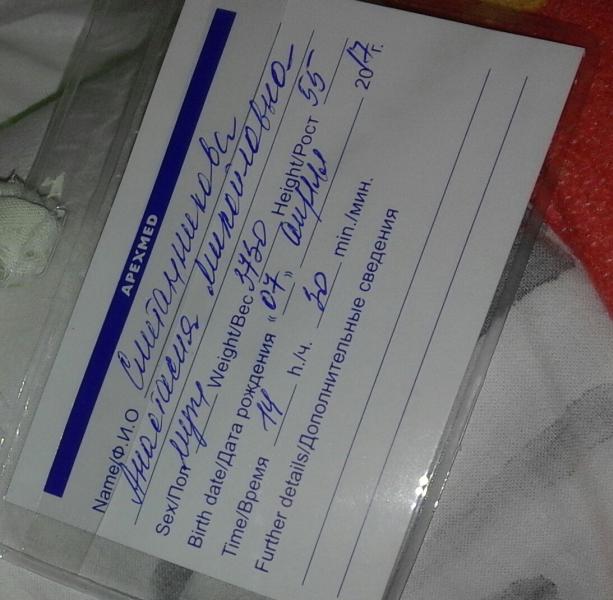 APEXMED
Name/Ф.И.О Сметанникова
Анастасия Николаевна
Sex/Пол муж Weight/Вес 3730 Height/Рост 55
Birth date/Дата рождения «07» апреля 2017г.
Time/Время 14 h./ч. 30 min./мин.
Further details/Дополнительные сведения